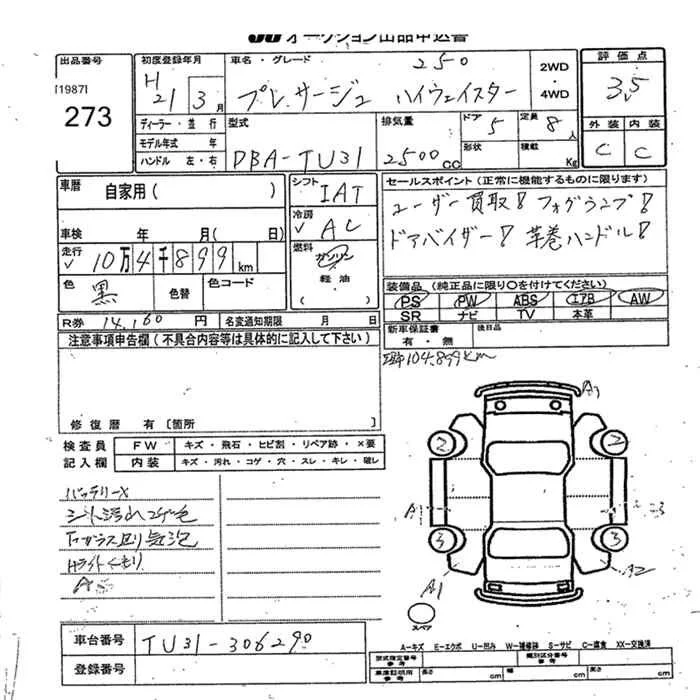 JU オークション出品申込書
出品番号 初度登録年月 車名・グレード 250 2WD・4WD 評価点
[1987] H 21 3月 プレサージュ ハイウェイスター 3.5
273
ディーラー・並行 型式 排気量 ドア 5 定員 8人 外装 内装
モデル年式 年 形状 積載 Kg C C
ハンドル 左・右 DBA-TU31 2500cc
車歴 自家用( ) シフト IAT セールスポイント(正常に機能するものに限ります)
冷房 AC ユーザー買取! フォグランプ!
車検 年 月(日) 燃料 ドアバイザー! 革巻ハンドル!
走行 10万4千899km ガソリン 軽油
装備品(純正品に限り○を付けてください)
色 黒 色替 色コード PS PW ABS エアB AW
SR ナビ TV 本革
R券 14,160円 名変通知期限 月 日 新車保証書 有・無 後日品
注意事項申告欄(不具合内容等は具体的に記入して下さい) 104,899km
修復歴 有〔箇所 〕
検査員記入欄 FW キズ・飛石・ヒビ割・リペア跡・×要
内装 キズ・汚れ・コゲ・穴・スレ・キレ・破レ
バッテリーX
シート汚れ コゲ
気泡
Hライトくもり
A
2 2
A1 3
3 3
A1 A2
スペア
車台番号 TU31-306290
登録番号
A-キズ E-エクボ U-凹み W-補修跡 S-サビ C-腐食 XX-交換済
型式指定番号 参考 類別区分番号 参考
車庫証明用 参考 長さ cm 幅 cm 高さ cm